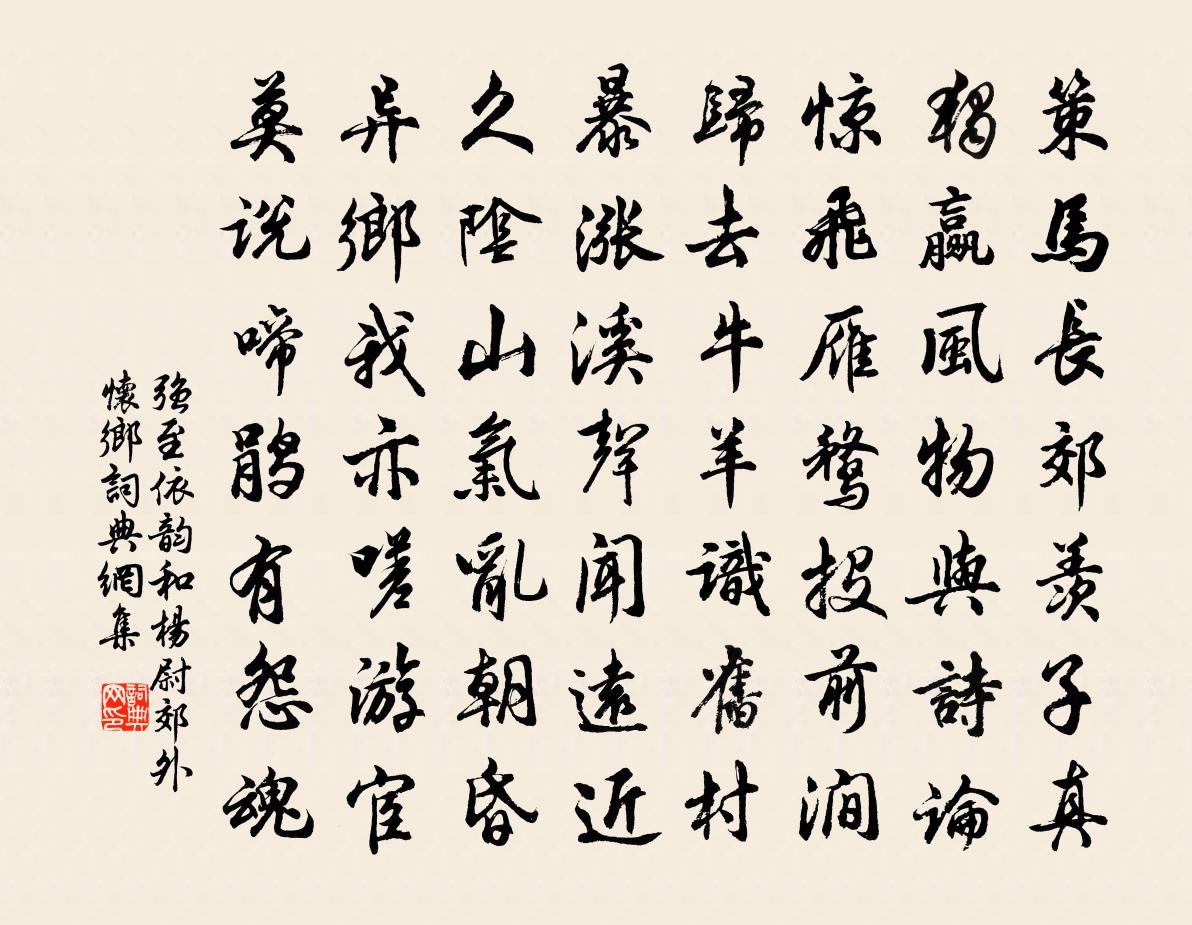 策馬長郊羨子真
獨贏風物與詩論
惊飛雁鶩投前澗
歸去牛羊識舊村
暴漲溪聲聞遠近
久陰山氣亂朝昏
异鄉我亦嗟游宦
莫説啼鵑有怨魂
強至依韵和楊尉郊外
懷鄉詞典網集
詞典網印